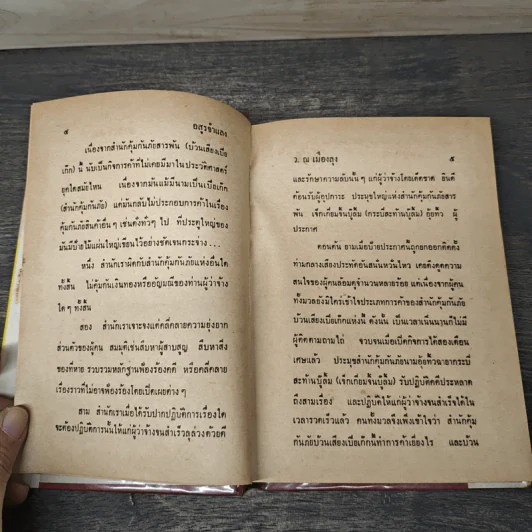 ๔
อสูรจำแลง
เนื่องจากสำนักคุ้มกันภัยสารพัน (บ้วนเสียงเปีย
เก๊ก) นี้ นับเป็นกิจการค้าที่ไม่เคยมีมาในประวัติศาสตร์
ยุคใดสมัยไหน เนื่องจากมันแม้มีนามเป็นเปียเก๊ก
(สำนักคุ้มกันภัย) แต่มันกลับไม่ประกอบการค้าในเรื่อง
คุ้มกันภัยสินค้าอื่น ๆ เช่นดั่งทั่วๆ ไป ที่ประตูใหญ่ของ
มันมีป้ายไม้แผ่นใหญ่เขียนไว้อย่างชัดเจนกระจ่าง...
หนึ่ง สำนักเราผิดกับสำนักคุ้มกันภัยแห่งอื่นใด
ทั้งสิ้น ไม่คุ้มกันเงินทองหรืออัญมณีของท่านผู้ว่าจ้าง
ใดๆ ทั้งสิ้น
สอง สำนักเราเจาะจงแต่คลี่คลายความยุ่งยาก
ส่วนตัวของผู้คน สมมุติเช่นสืบหาผู้สาบสูญ สืบหาสิ่ง
ของที่หาย รวบรวมหลักฐานฟ้องร้องคดี หรือคลี่คลาย
เรื่องราวที่ไม่อาจฟ้องร้องโดยเปิดเผยต่างๆ
สาม สำนักเราเมื่อได้รับปากปฏิบัติการเรื่องใด
จะต้องปฏิบัติการนั้นให้แก่ผู้ว่าจ้างจนสำเร็จลุล่วงด้วยดี
ว. ณ เมืองลุง
๕
และรักษาความลับนั้นๆ แก่ผู้ว่าจ้างโดยเด็ดขาด ยินดี
ต้อนรับผู้อุปการะ ประมุขใหญ่แห่งสำนักคุ้มกันภัยสาร
พัน
ประกาศ
ตอนต้น ยามเมื่อป้ายประกาศนี้ถูกยกออกติดตั้ง
ท่ามกลางเสียงประทัดอันสนั่นหวั่นไหว เคยดึงดูดความ
สนใจของผู้คนล้อมดูจำนวนหลายร้อย แต่เนื่องจากผู้คน
ทั้งมวลยังมีใครเข้าใจประเภทการค้าของสำนักคุ้มกันภัย
บ้วนเสียงเปียเก๊กแห่งนี้ ดังนั้น เป็นเวลาเนิ่นนานก็ไม่มี
ผู้ติดตามถามไถ่ จวบจนเมื่อเปิดกิจการได้สองเดือน
เศษแล้ว
รับปฏิบัติคดีประหลาด
ถึงสามเรื่อง และปฏิบัติให้แก่ผู้ว่าจ้างจนสำเร็จได้ใน
เวลารวดเร็วแล้ว คนทั้งมวลจึงเพิ่งเข้าใจว่า สำนักคุ้ม
กันภัยบ้วนเสียงเปียเก๊กนี้ทำการค้าเยี่ยงไร และบ้วน